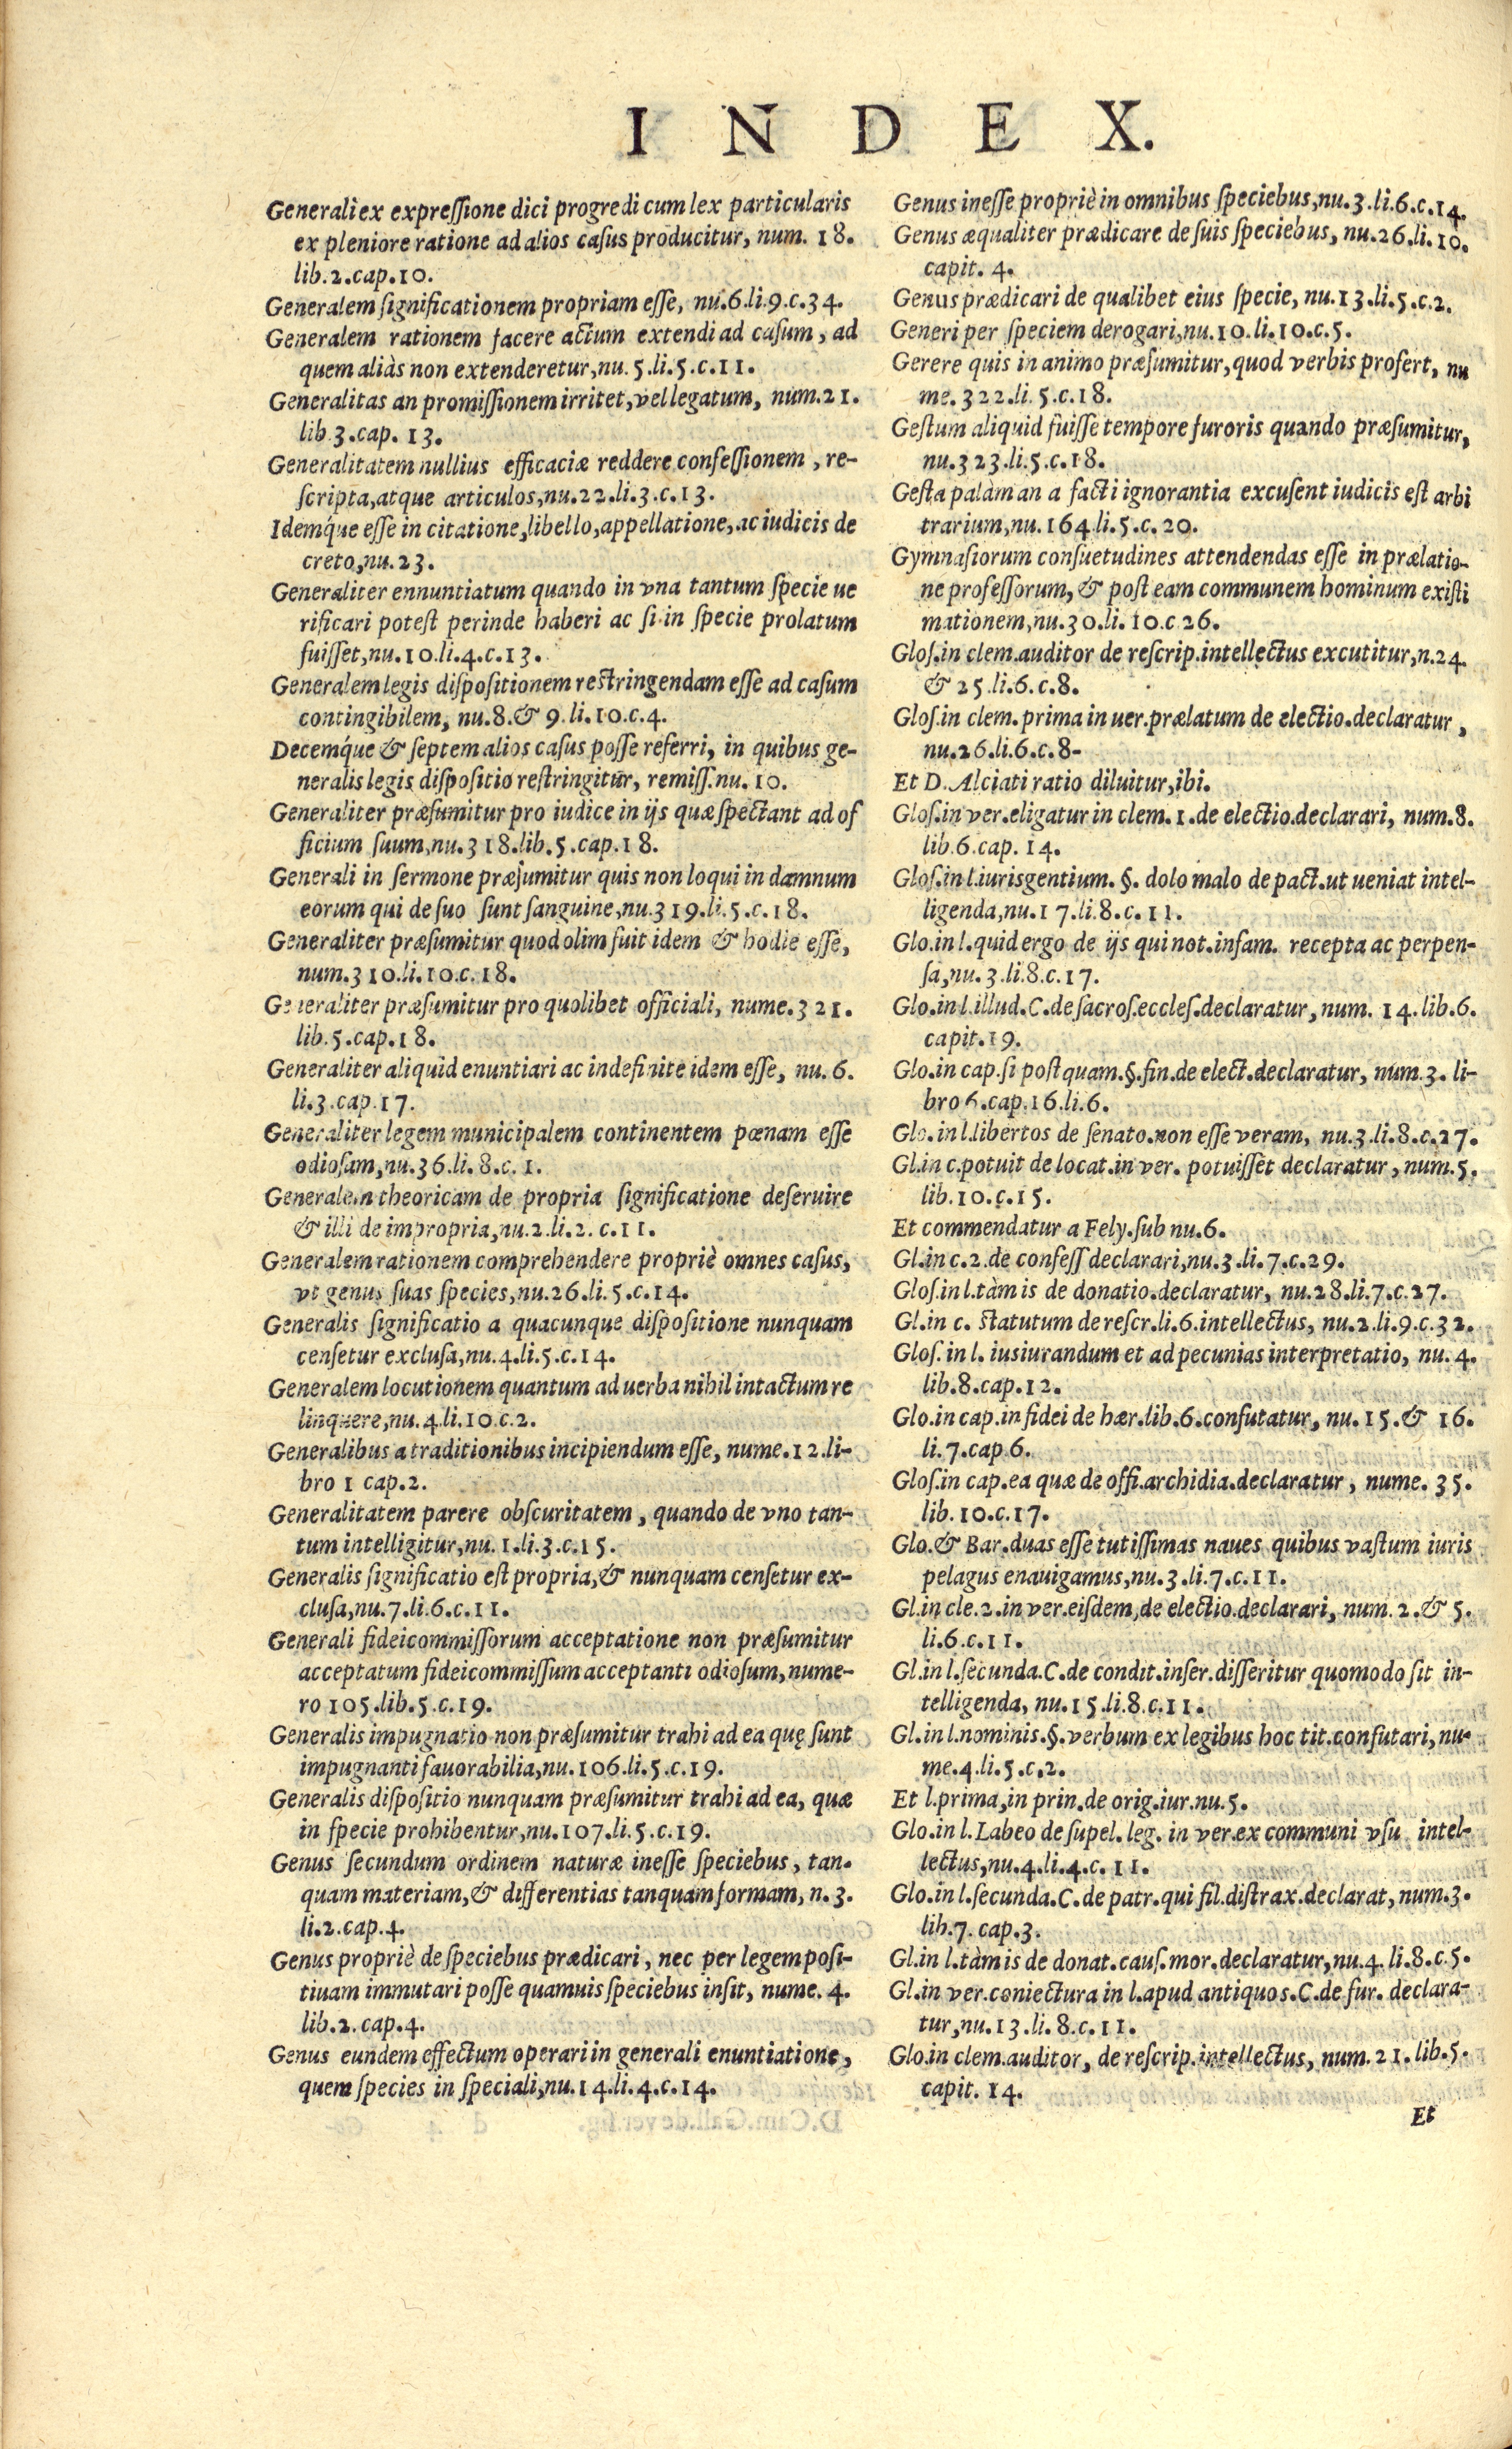 INDEX.
Generali ex expreſſione dici progredi cum lex particularis
ex pleniore ratione ad alios caſus producitur, num. 18.
lib.2.cap.10.
Generalem ſignificationem propriam eſſe, nu.6.li.9.c.34.
Generalem rationem facere actum extendi ad caſum, ad
quem aliàs non extenderetur, nu. 5.li.5.c.11.
Generalitas an promiſſionem irritet, vel legatum, num.21.
lib.3.cap. 13.
Generalitatem nullius efficaciæ reddere confeſſionem, re-
ſcripta, atque articulos, nu.22.li.3.c.13.
Idemq́ue eſſe in citatione, libello, appellatione, ac iudicis de
creto, nu.23.
Generaliter ennuntiatum quando in vna tantum ſpecie ue
rificari poteſt perinde haberi ac ſi in ſpecie prolatum
fuiſſet, nu.10.li.4.c.13.
Generalem legis diſpoſitionem reſtringendam eſſe ad caſum
contingibilem, nu.8.& 9.li.10.c.4.
Decemq́ue & ſeptem alios caſus poſſe referri, in quibus ge-
neralis legis diſpoſitio reſtringitur, remiſſ.nu. 10.
Generaliter præſumitur pro iudice in ijs quæ ſpectant ad of
ficium ſuum, nu.318.lib.5.cap.18.
Generali in ſermone præſumitur quis non loqui in damnum
eorum qui de ſuo ſunt ſanguine, nu.319.li.5.c.18.
Generaliter præſumitur quod olim fuit idem & hodie eſſe,
num.310.li.10.c.18.
Generaliter præſumitur pro quolibet officiali, nume.321.
lib.5.cap.18.
Generaliter aliquid enuntiari ac indefinite idem eſſe, nu. 6.
li.3.cap.17.
Generaliter legem municipalem continentem pœnam eſſe
odioſam, nu.36.li.8.c.1.
Generalem theoricam de propria ſignificatione deſeruire
& illi de impropria, nu.2.li.2. c.11.
Generalem rationem comprehendere propriè omnes caſus,
vt genus ſuas ſpecies, nu.26.li.5.c.14.
Generalis ſignificatio a quacunque diſpoſitione nunquam
cenſetur excluſa, nu.4.li.5.c.14.
Generalem locutionem quantum ad uerba nihil intactum re
linquere, nu.4.li.10.c.2.
Generalibus a traditionibus incipiendum eſſe, nume.12.li-
bro 1 cap.2.
Generalitatem parere obſcuritatem, quando de vno tan-
tum intelligitur, nu.1.li.3.c.15.
Generalis ſignificatio eſt propria, & nunquam cenſetur ex-
cluſa, nu.7.li.6.c.11.
Generali fideicommiſſorum acceptatione non præſumitur
acceptatum fideicommiſſum acceptanti odioſum, nume-
ro 105.lib.5.c.19.
Generalis impugnatio non præſumitur trahi ad ea quę ſunt
impugnanti fauorabilia, nu.106.li.5.c.19.
Generalis diſpoſitio nunquam præſumitur trahi ad ea, quæ
in ſpecie prohibentur, nu.107.li.5.c.19.
Genus ſecundum ordinem naturæ ineſſe ſpeciebus, tan-
quam materiam, & differentias tanquam formam, n.3.
li.2.cap.4.
Genus propriè de ſpeciebus prædicari, nec per legem poſi-
tiuam immutari poſſe quamuis ſpeciebus inſit, nume. 4.
lib.2.cap.4.
Genus eundem effectum operari in generali enuntiatione,
quem ſpecies in ſpeciali, nu.14.li.4.c.14.
Genus ineſſe propriè in omnibus ſpeciebus, nu.3.li.6.c.14.
Genus æqualiter prædicare de ſuis ſpeciebus, nu.26.li.10.
capit. 4.
Genus prædicari de qualibet eius ſpecie, nu.13.li.5.c.2.
Generi per ſpeciem derogari, nu.10.li.10.c.5.
Gerere quis in animo præſumitur, quod verbis profert, nu
me. 322.li.5.c.18.
Geſtum aliquid fuiſſe tempore furoris quando præſumitur,
nu.323.li.5.c.18.
Geſta palàm an a facti ignorantia excuſent iudicis eſt arbi
trarium, nu. 164.li.5.c.20.
Gymnaſiorum conſuetudines attendendas eſſe in prælatio-
ne profeſſorum, & poſt eam communem hominum exiſti
mationem, nu.30.li.10.c 26.
Gloſ.in clem.auditor de reſcrip.intellectus excutitur, n.24.
& 25.li.6.c.8.
Gloſ.in clem.prima in uer.prælatum de electio.declaratur,
nu.26.li.6.c.8-
Et D. Alciati ratio diluitur, ibi.
Gloſ.in ver.eligatur in clem.1.de electio.declarari, num.8.
lib.6.cap. 14.
Gloſ.in l.iurisgentium.§. dolo malo de pact.ut ueniat intel-
ligenda, nu.17.li.8.c.11.
Glo.in l.quid ergo de ijs qui not.infam. recepta ac perpen-
ſa, nu.3.li.8.c.17.
Glo.in l.illud.C.de ſacroſ.eccleſ.declaratur, num. 14.lib.6.
capit.19.
Glo.in cap.ſi poſtquam.§.fin.de elect.declaratur, num.3. li-
bro 6.cap.16.li.6.
Glo.in l.libertos de ſenato.non eſſe veram, nu.3.li.8.c.27.
Gl.in c.potuit de locat.in ver. potuiſſet declaratur, num.5.
lib.10.c.15.
Et commendatur a Fely.ſub nu.6.
Gl.in c.2.de confeſſ declarari, nu.3.li.7.c.29.
Gloſ.in l.tàm is de donatio.declaratur, nu.28.li.7.c.27.
Gl.in c. ſtatutum de reſcr.li.6.intellectus, nu.2.li.9.c.32.
Gloſ.in l. iuſiurandum et ad pecunias interpretatio, nu.4.
lib.8.cap.12.
Glo.in cap.in fidei de hær.lib.6.confutatur, nu.15.& 16.
li.7.cap 6.
Gloſ.in cap.ea quæ de offi.archidia.declaratur, nume. 35.
lib.10.c.17.
Glo.& Bar.duas eſſe tutiſſimas naues quibus vaſtum iuris
pelagus enauigamus, nu.3.li.7.c.11.
Gl.in cle.2.in ver.eiſdem, de electio.declarari, num. 2.& 5.
li.6.c.11.
Gl.in l.ſecunda.C.de condit.inſer.diſſeritur quomodo ſit in-
telligenda, nu.15.li.8.c.11.
Gl.in l.nominis.§.verbum ex legibus hoc tit.confutari, nu-
me.4.li.5.c.2.
Et l.prima, in prin.de orig.iur.nu.5.
Glo.in l.Labeo de ſupel. leg. in ver.ex communi vſu intel-
lectus, nu.4.li.4.c.11.
Glo.in l.ſecunda.C.de patr.qui fil.diſtrax.declarat, num.3.
lib.7. cap.3.
Gl.in l.tàm is de donat.cauſ.mor.declaratur, nu.4. li.8.c.5.
Gl.in ver.coniectura in l.apud antiquos.C.de fur. declara-
tur, nu.13.li.8.c.11.
Glo.in clem.auditor, de reſcrip.intellectus, num.21.lib.5.
capit. 14.
Et